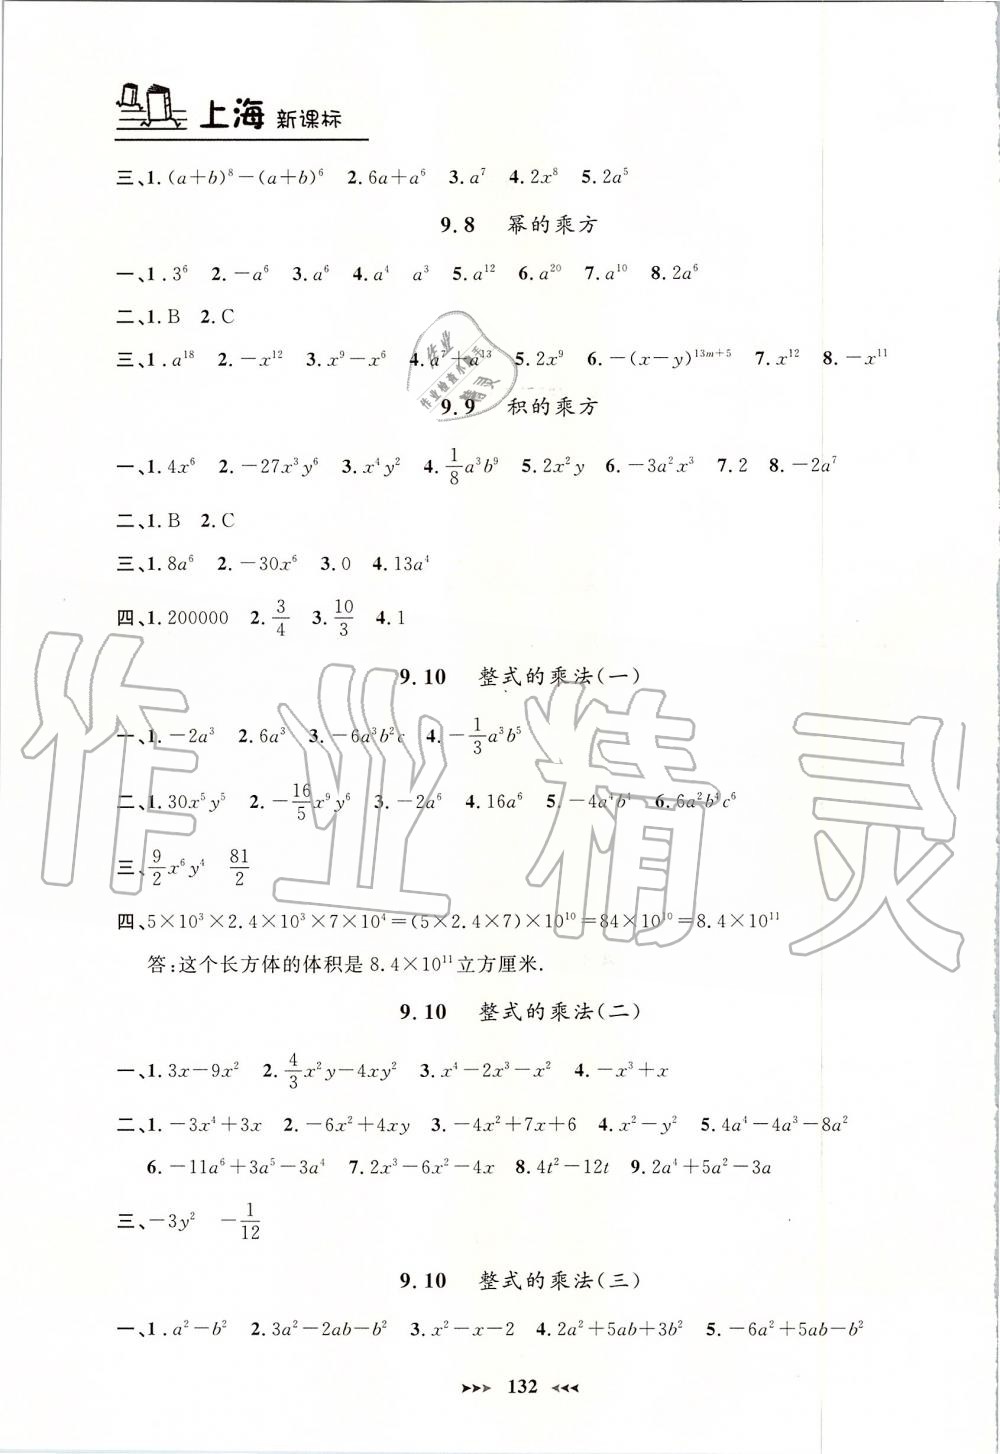 上海 新课标
三、1. (a+b)⁸-(a+b)⁶ 2. 6a+a⁶ 3. a⁷ 4. 2x⁸ 5. 2a⁵
9.8 幂的乘方
一、1. 3⁶ 2. -a⁶ 3. a⁶ 4. a⁴ a³ 5. a¹² 6. a²⁰ 7. a¹⁰ 8. 2a⁶
二、1. B 2. C
三、1. a¹⁸ 2. -x¹² 3. x⁹-x⁶ 4. a⁷+a¹³ 5. 2x⁹ 6. -(x-y)¹³ᵐ⁺⁵ 7. x¹² 8. -x¹¹
9.9 积的乘方
一、1. 4x⁶ 2. -27x³y⁶ 3. x⁴y² 4. 1/8 a³b⁹ 5. 2x²y 6. -3a²x³ 7. 2 8. -2a⁷
二、1. B 2. C
三、1. 8a⁶ 2. -30x⁶ 3. 0 4. 13a⁴
四、1. 200000 2. 3/4 3. 10/3 4. 1
9.10 整式的乘法(一)
一、1. -2a³ 2. 6a³ 3. -6a³b²c 4. -1/3 a³b⁵
二、1. 30x⁵y⁵ 2. -16/5 x⁹y⁶ 3. -2a⁶ 4. 16a⁶ 5. -4a⁴b⁴ 6. 6a²b⁴c⁶
三、9/2 x⁶y⁴ 81/2
四、5×10³×2.4×10³×7×10⁴=(5×2.4×7)×10¹⁰=84×10¹⁰=8.4×10¹¹
答:这个长方体的体积是8.4×10¹¹立方厘米.
9.10 整式的乘法(二)
一、1. 3x-9x² 2. 4/3 x²y-4xy² 3. x⁴-2x³-x² 4. -x³+x
二、1. -3x⁴+3x 2. -6x²+4xy 3. -4x²+7x+6 4. x²-y² 5. 4a⁴-4a³-8a²
6. -11a⁶+3a⁵-3a⁴ 7. 2x³-6x²-4x 8. 4t²-12t 9. 2a⁴+5a²-3a
三、-3y² -1/12
9.10 整式的乘法(三)
一、1. a²-b² 2. 3a²-2ab-b² 3. x²-x-2 4. 2a²+5ab+3b² 5. -6a²+5ab-b²
132
作业精灵